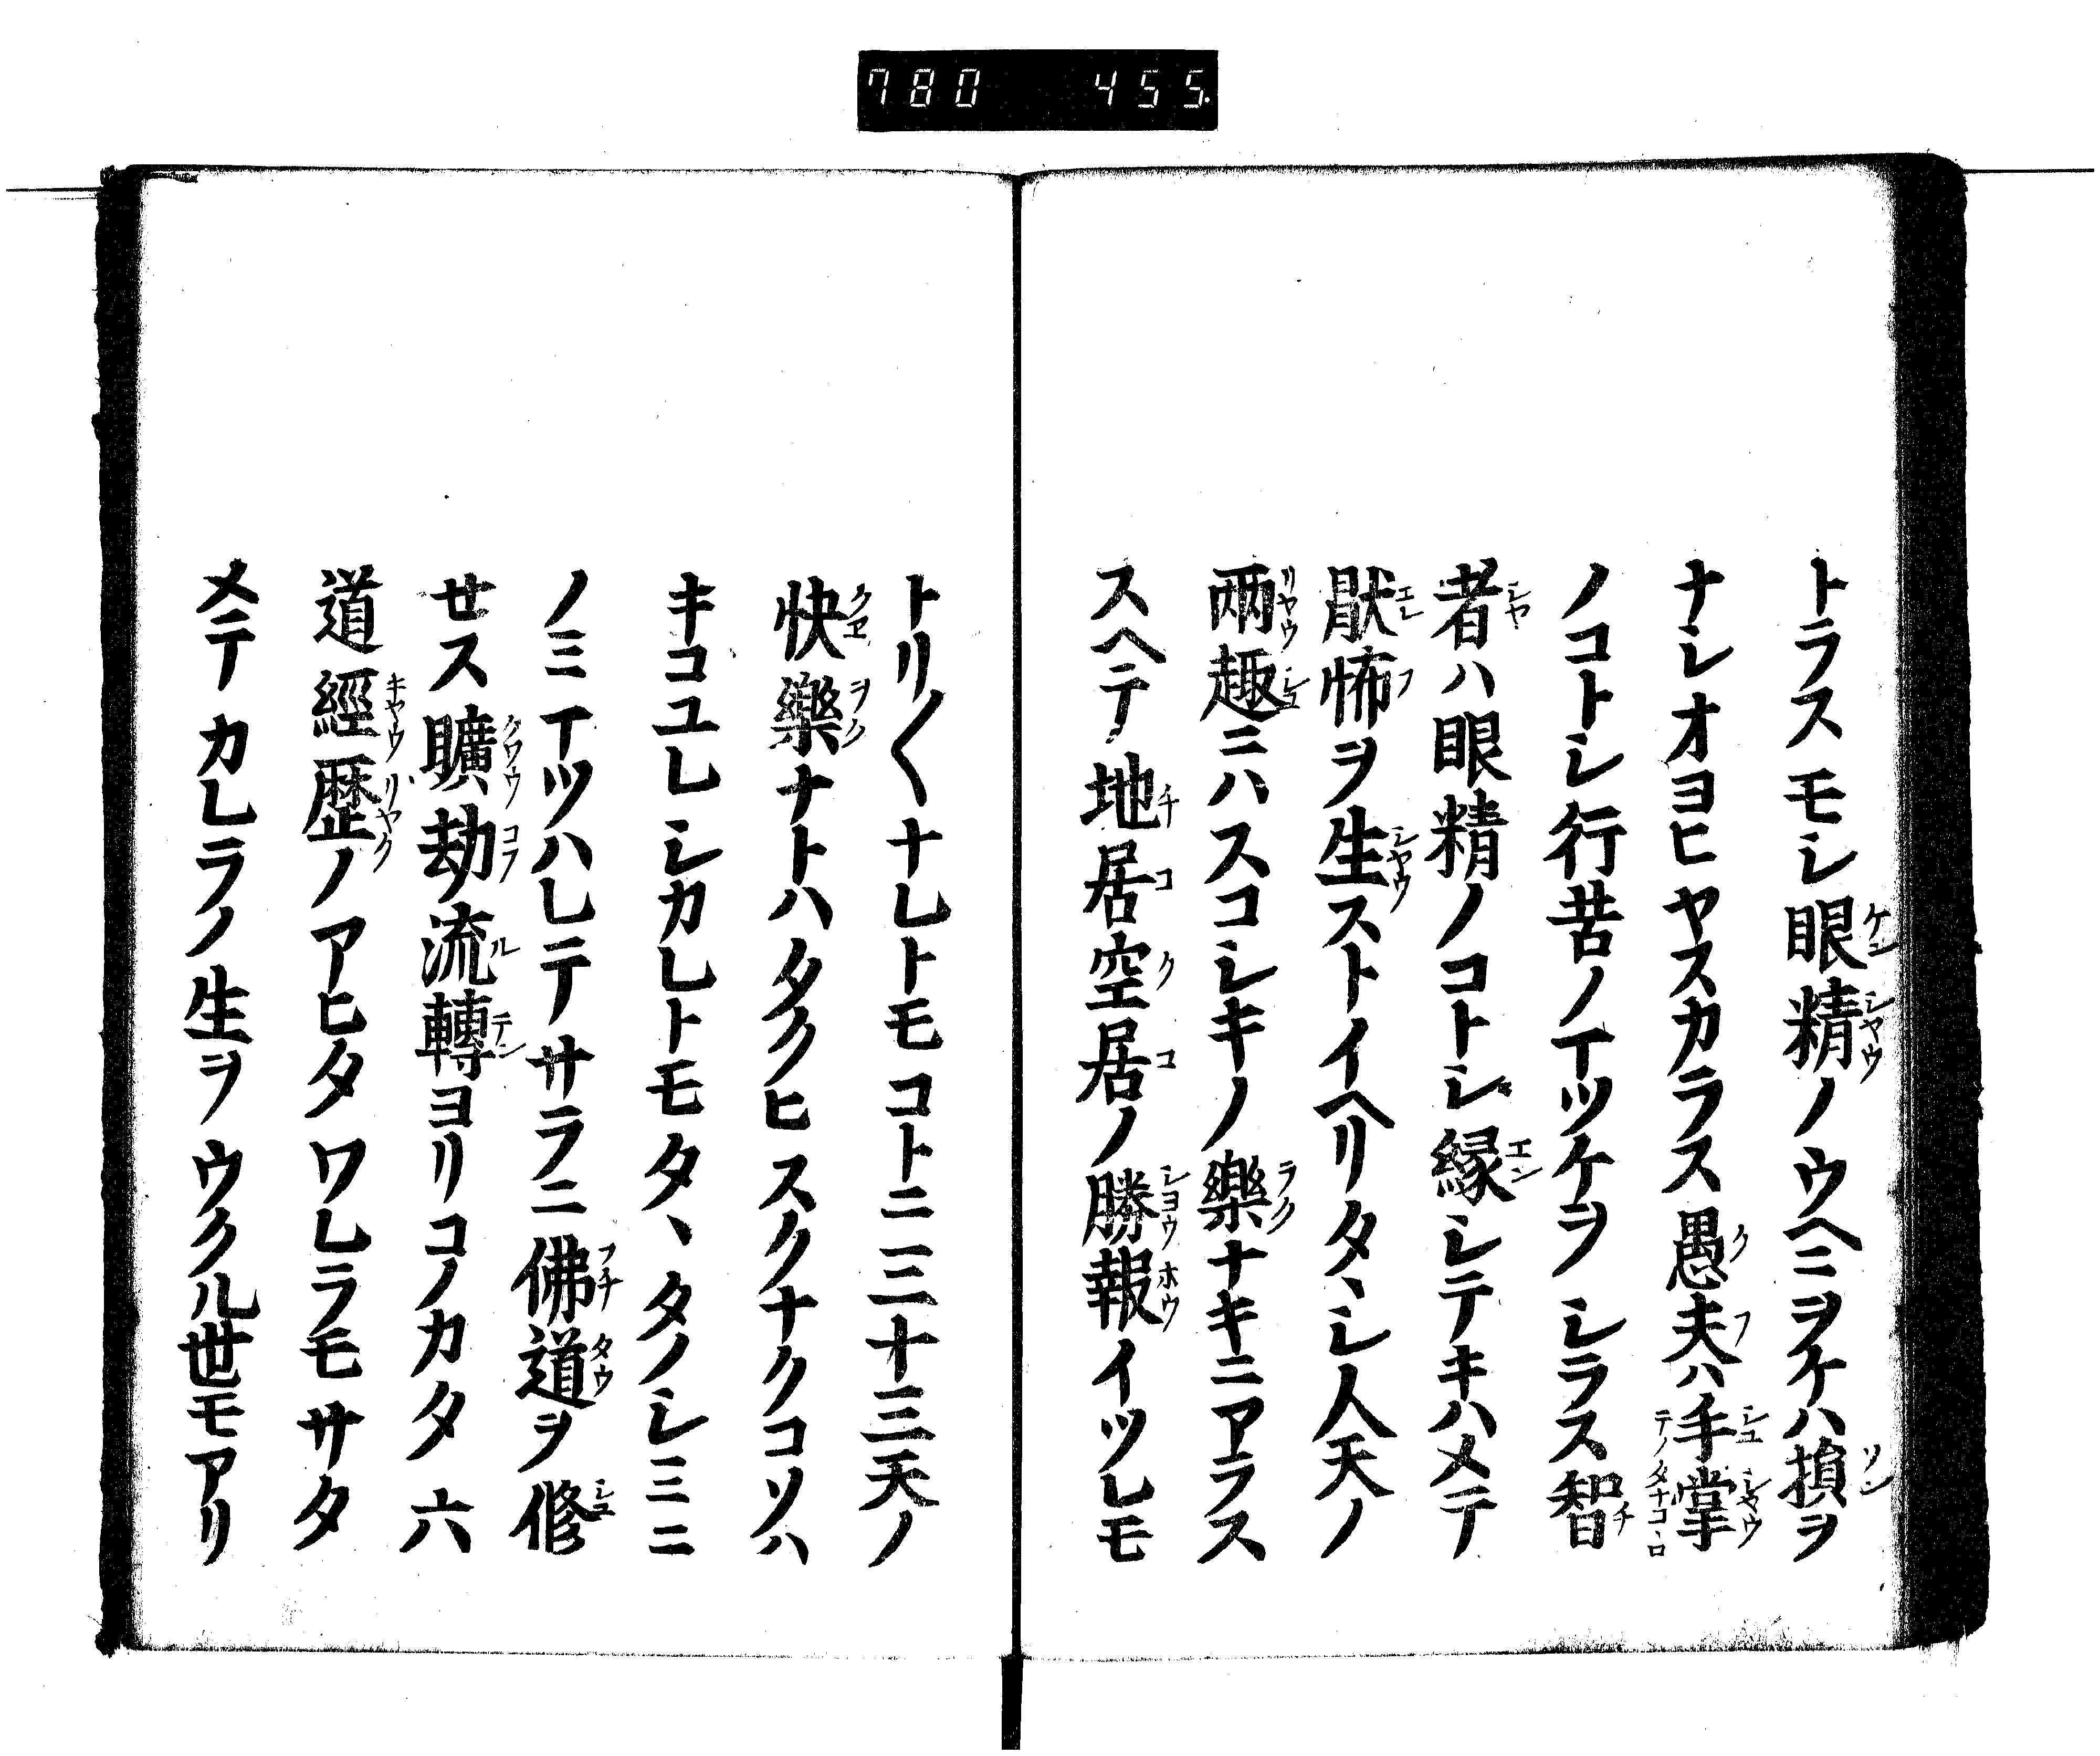 780 455
トラスモシ眼精ノウヘニヲケハ損ヲ
ナシオヨヒヤスカラス愚夫ハ手掌
ノコトシ行苦ノイツケヲシラス智
者ハ眼精ノコトシ縁シテキハメテ
猒怖ヲ生ストイヘリタヽシ人天ノ
兩趣ニハスコシキノ樂ナキニアラス
スヘテ地居空居ノ勝報イツレモ
トリ〱ナレトモコトニ三十三天ノ
快樂ナトハタクヒスクナクコソハ
キコユレシカレトモタヽタノシミニ
ノミイツハレテサラニ佛道ヲ修
せス曠劫流轉ヨリコノカタ六
道經歴ノアヒタワレラモサタ
メテカレラノ生ヲウクル世モアリ